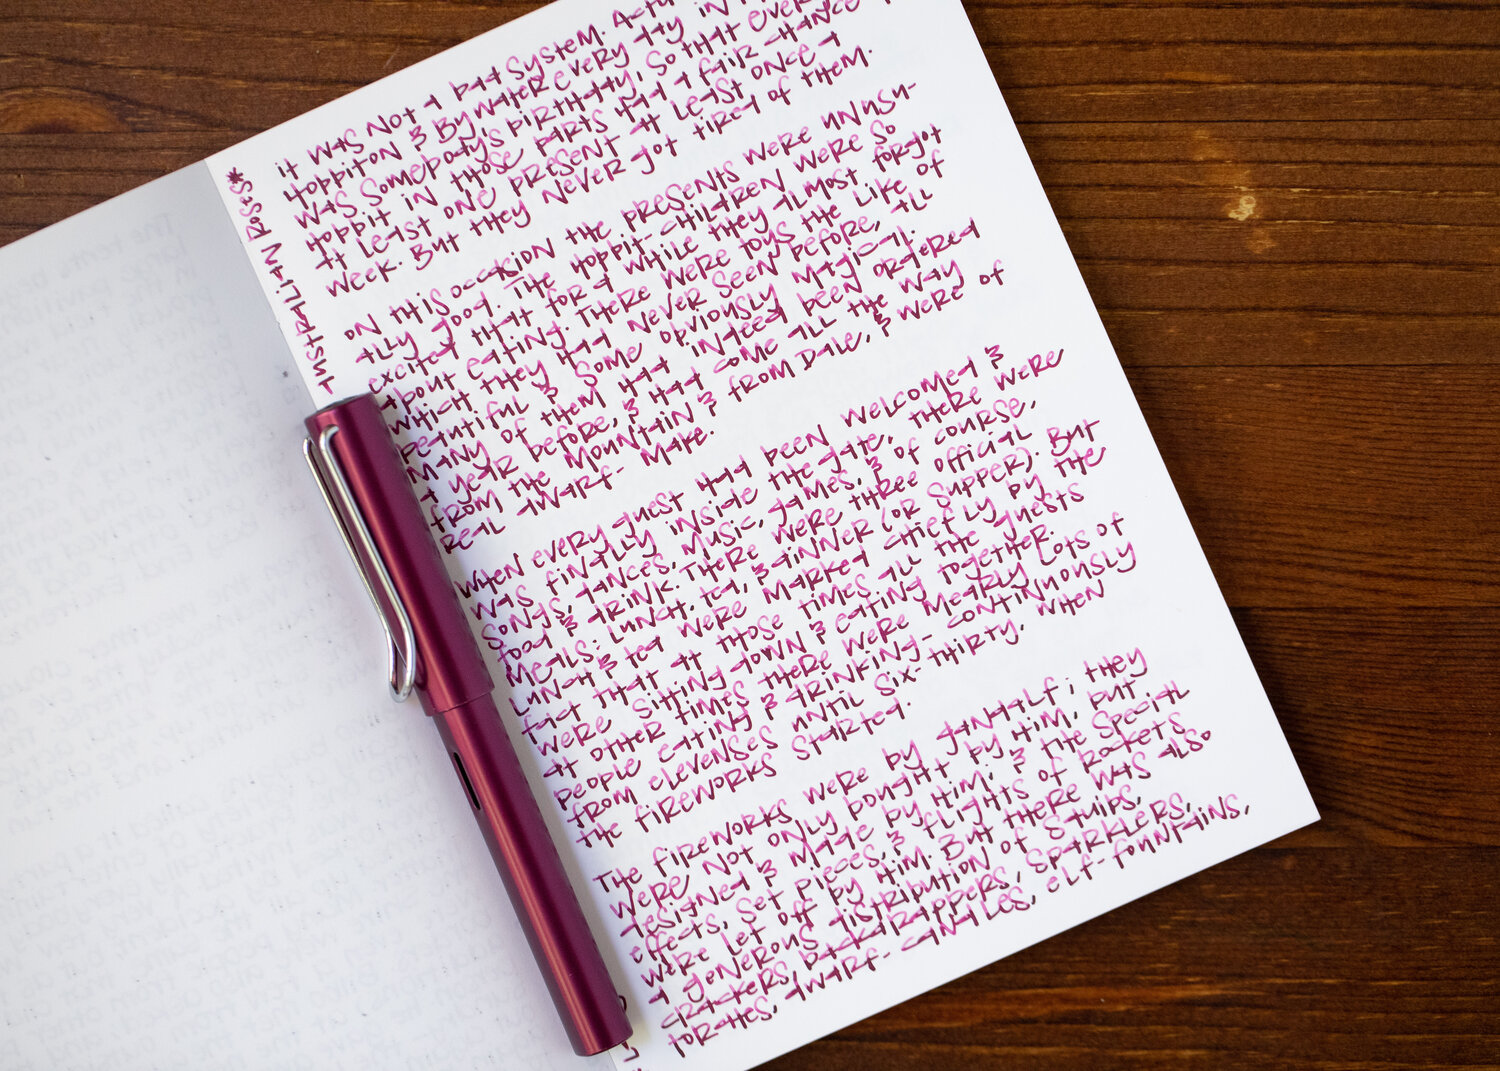 * AUSTRALIAN ROSES
it was not a bad system. Actu
Hobbiton & Bywater every day in
was somebody's birthday, so that every
hobbit in those parts had a fair chance
at least one present at least once a
week. But they never got tired of them.
On this occasion the presents were unusu-
ally good. The hobbit-children were so
excited that for a while they almost forgot
about eating. There were toys the like of
which they had never seen before, all
beautiful & some obviously magical.
Many of them had indeed been ordered
a year before, & had come all the way
from the Mountain & from Dale, & were of
real dwarf-make.
When every guest had been welcomed &
was finally inside the gate, there were
songs, dances, music, games, & of course,
food & drink. There were three official
meals: lunch, tea, & dinner (or supper). But
lunch & tea were marked chiefly by the
fact that at those times all the guests
were sitting down & eating together.
At other times there were mearly lots of
people eating & drinking - continuously
from elevenses until six-thirty, when
the fireworks started.
The fireworks were by Gandalf; they
were not only bought by him, but
designed & made by him; & the special
effects, set pieces, & flights of rockets
were let off by him. But there was also
a generous distribution of squibs,
crackers, backarappers, sparklers,
torches, dwarf-candles, elf-fountains,